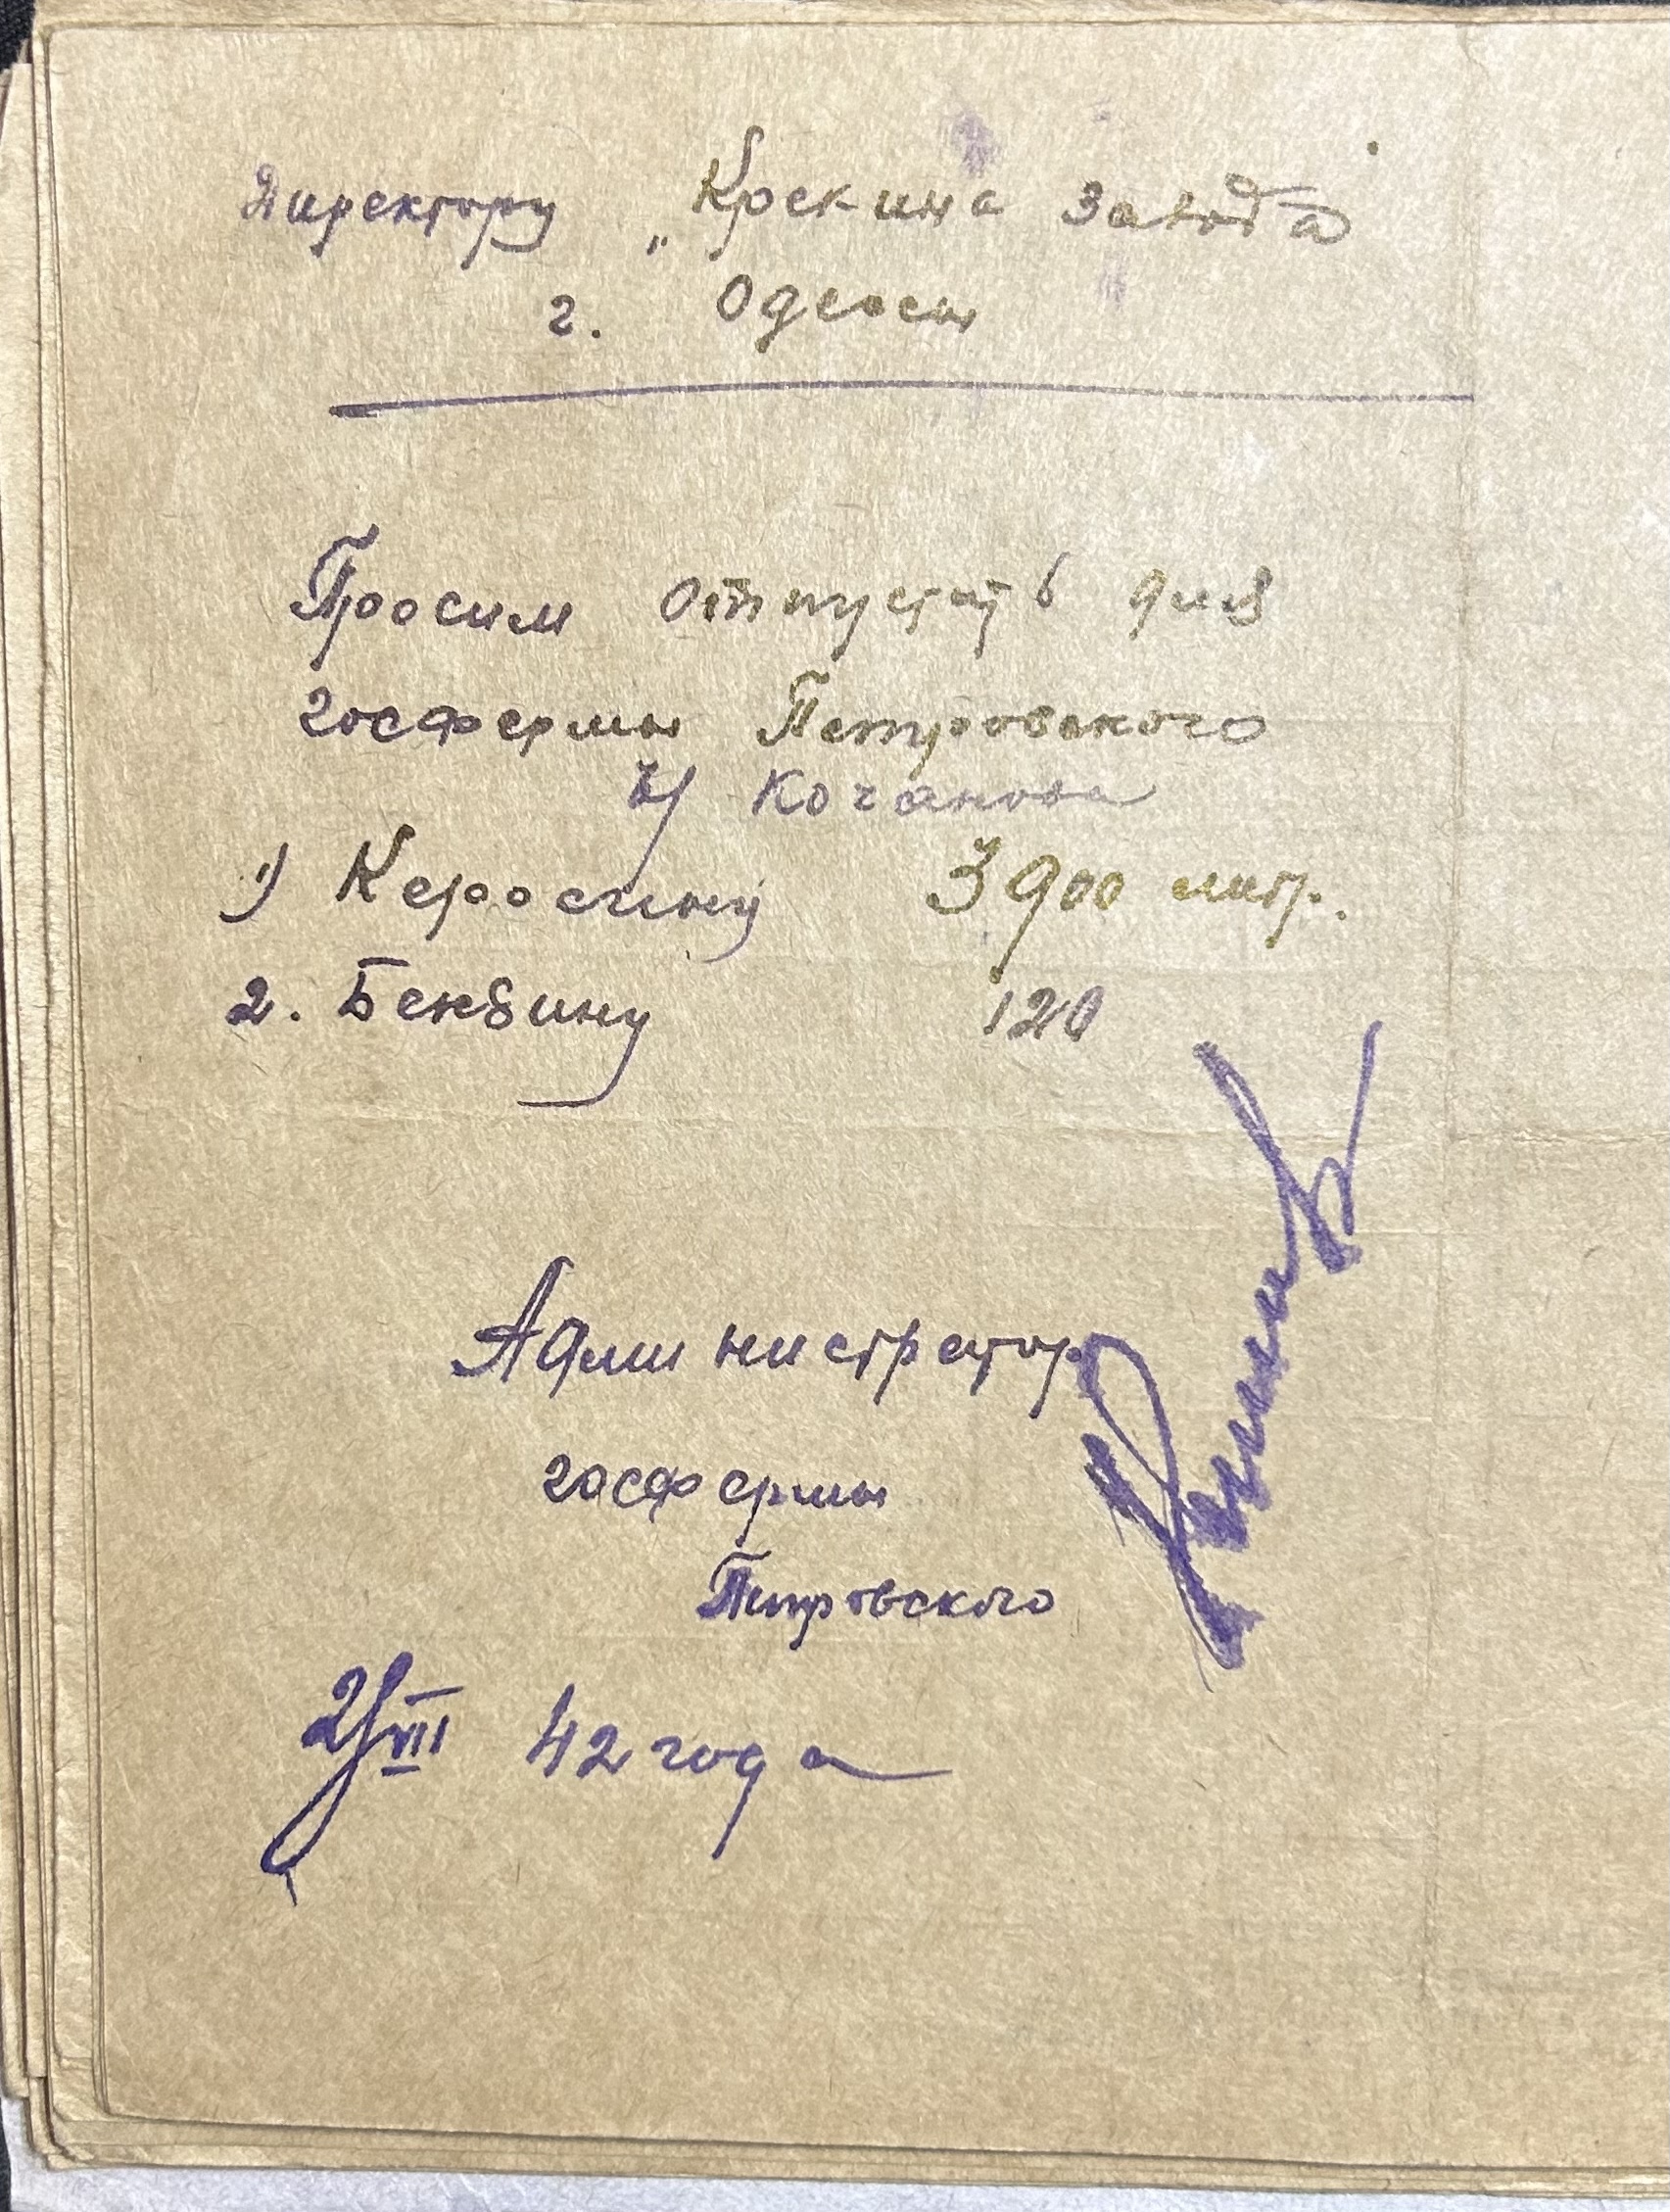 Директору „Крекина завода
г. Одессы
Просим отпустать для
госфермы Петровского
ч/ Коганова
1) Керосину 3900 литр.
2. Бензину 120
Администратор.
госфермы
Петровского
2/VII 42 года